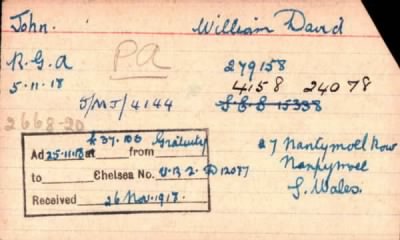 John. William David
P.A
R.G.A 279158
5.11.18 4158 24078
J/MJ/4144
2668-20
£37.10s Gratuity
Ad 25.11.18 at from
to Chelsea No. U.B.2. D 12087
Received 26 Nov. 1918.
27 Nantymoel Row
Nantymoel
S. Wales.